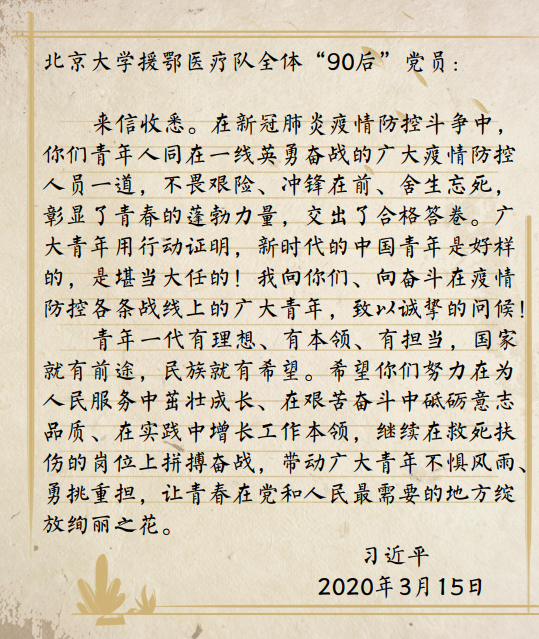 北京大学援鄂医疗队全体“90后”党员：
来信收悉。在新冠肺炎疫情防控斗争中，
你们青年人同在一线英勇奋战的广大疫情防控
人员一道，不畏艰险、冲锋在前、舍生忘死，
彰显了青春的蓬勃力量，交出了合格答卷。广
大青年用行动证明，新时代的中国青年是好样
的，是堪当大任的！我向你们、向奋斗在疫情
防控各条战线上的广大青年，致以诚挚的问候！
青年一代有理想、有本领、有担当，国家
就有前途，民族就有希望。希望你们努力在为
人民服务中茁壮成长、在艰苦奋斗中砥砺意志
品质、在实践中增长工作本领，继续在救死扶
伤的岗位上拼搏奋战，带动广大青年不惧风雨、
勇挑重担，让青春在党和人民最需要的地方绽
放绚丽之花。
习近平
2020年3月15日